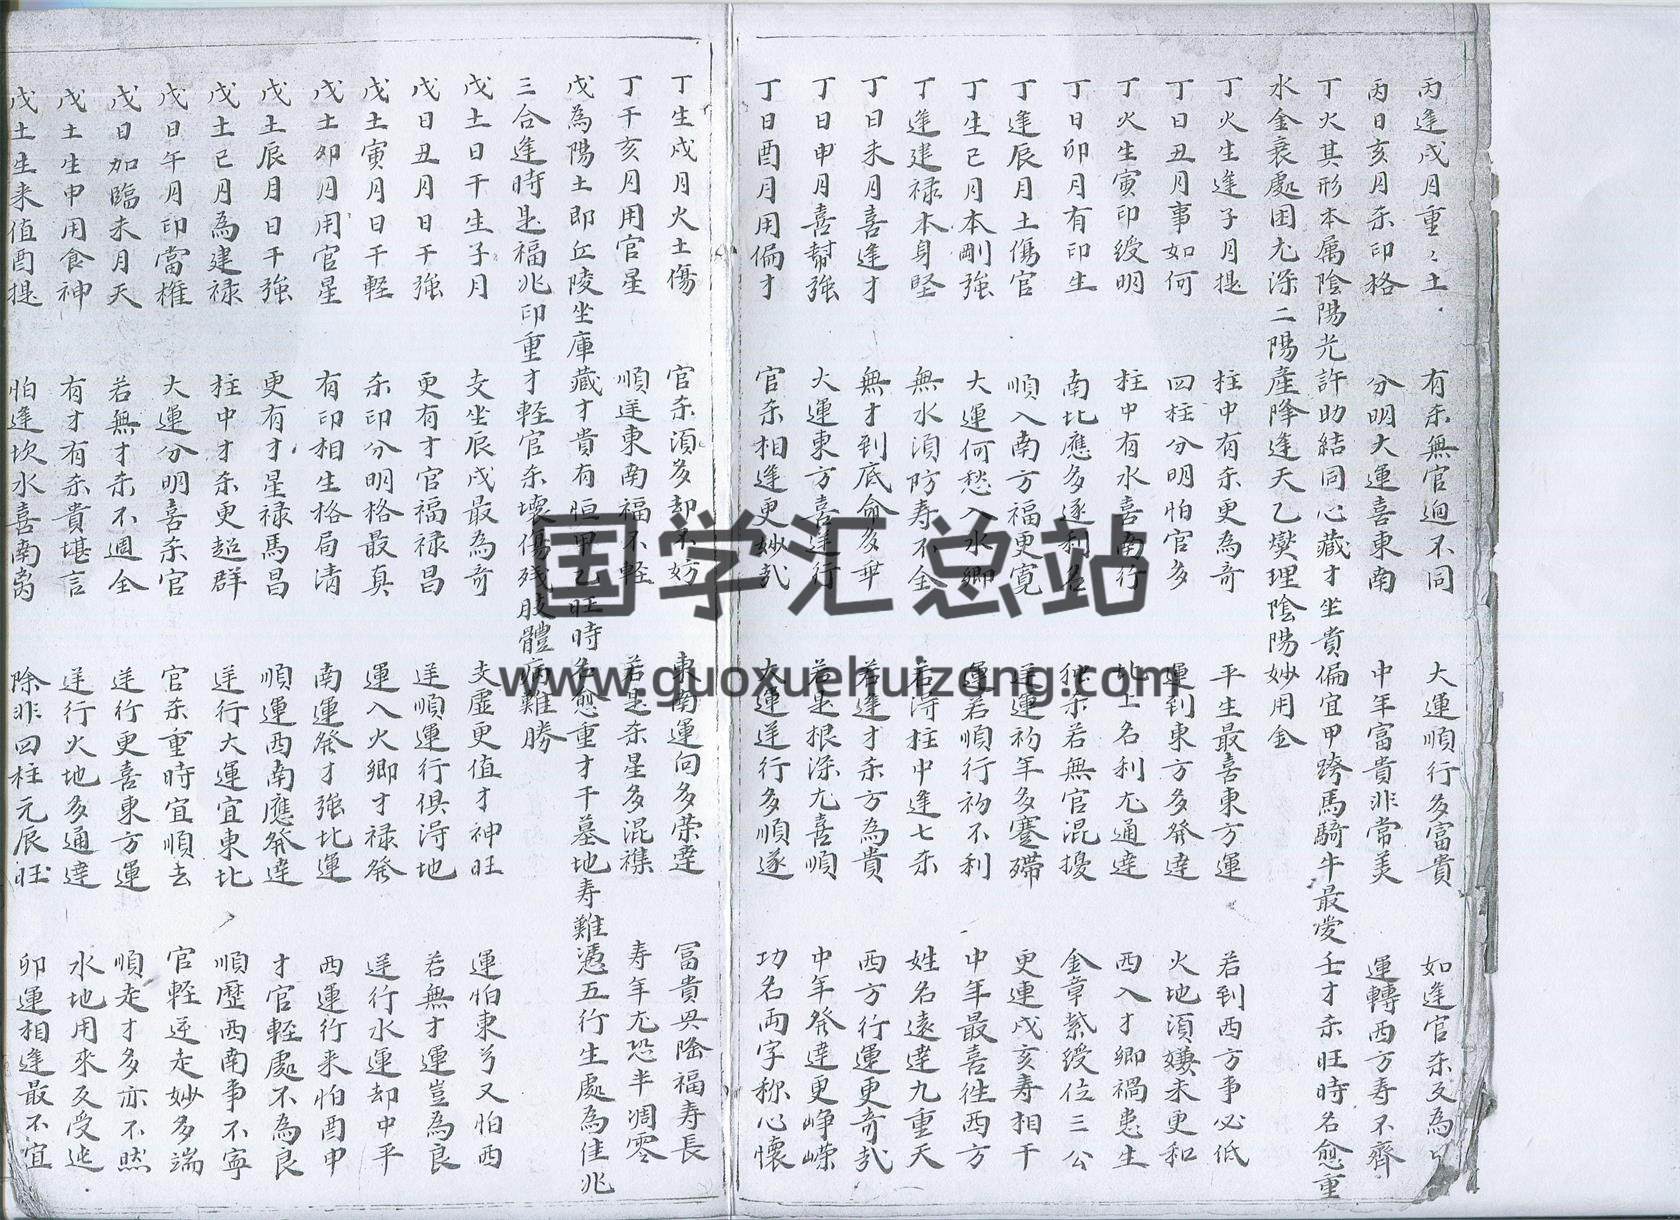 丙逢戌月重々土 有杀無官迥不同 大運順行多富貴 如逢官杀反為
丙日亥月杀印格 分明大運喜東南 中年富貴非常美 運轉西方寿不齊
丁火其形本属陰陽光許助結同心藏才坐貴偏宜甲跨馬騎牛最愛壬才杀旺時名愈重
水金衰處困尤深二陽產降逢天乙燮理陰陽妙用金
丁火生逢子月提 柱中有杀更為奇 平生最喜東方運 若到西方事必低
丁日丑月事如何 四柱分明怕官多 運到東方多發達 火地須嫌未更和
丁火生寅印绶明 柱中有水喜南行 北土名利尤通達 西入才卿禍患生
丁日卯月有印生 南北應多逐利名 独杀若無官混擾 金章紫绶位三公
丁逢辰月土傷官 順入南方福更寛 逆運初年多蹇滞 更連戌亥寿相干
丁生已月本剛強 大運何愁入水卿 運若順行初不利 中年最喜往西方
丁逢建禄本身堅 無水須防寿不全 若得柱中逢七杀 姓名遠達九重天
丁日未月喜逢才 無才到底命多乖 若逢才杀方為貴 西方行運更奇哉
丁日申月喜幇強 大運東方喜逆行 若是根深尤喜順 中年發達更峥嵘
丁日酉月用偏才 官杀相逢更妙哉 大運逆行多順遂 功名両字称心懷
丁生戌月火土傷 官杀須多却不妨 東南運向多荣達 冨貴興隆福寿長
丁干亥月用官星 順逆東南福不軽 若是杀星多混襍 寿年尤恐半凋零
戊為陽土即丘陵坐庫藏才貴有恒甲乙旺時名愈重才干墓地寿難憑五行生處為佳兆
三合逢時是福兆印重才輕官杀壞傷残肢體病難勝
戊土日干生子月 支坐辰戌最為奇 支虚更值才神旺 運怕東兮又怕西
戊日丑月日干強 更有才官福禄昌 逆順運行俱得地 若無才運豈為良
戊土寅月日干輕 杀印分明格最真 運入火卿才禄發 逆行水運却中平
戊土卯月用官星 有印相生格局清 南運發才強北運 西運行来怕酉申
戊土辰月日干強 更有才星禄馬昌 順運西南應發達 才官輕處不為良
戊土已月為建禄 柱中才杀更超群 逆行大運宜東北 順歷西南事不寧
戊日午月印當權 大運分明喜杀官 官杀重時宜順去 官輕逆走妙多端
戊日加臨未月天 若無才杀不週全 逆行更喜東方運 順走才多亦不然
戊土生申用食神 有才有杀貴堪言 逆行火地多通達 水地用來反受迍
戊土生来值酉提 怕逢坎水喜南离 除非四柱元辰旺 卯運相逢最不宜
国学汇总站
www.guoxuehuizong.com